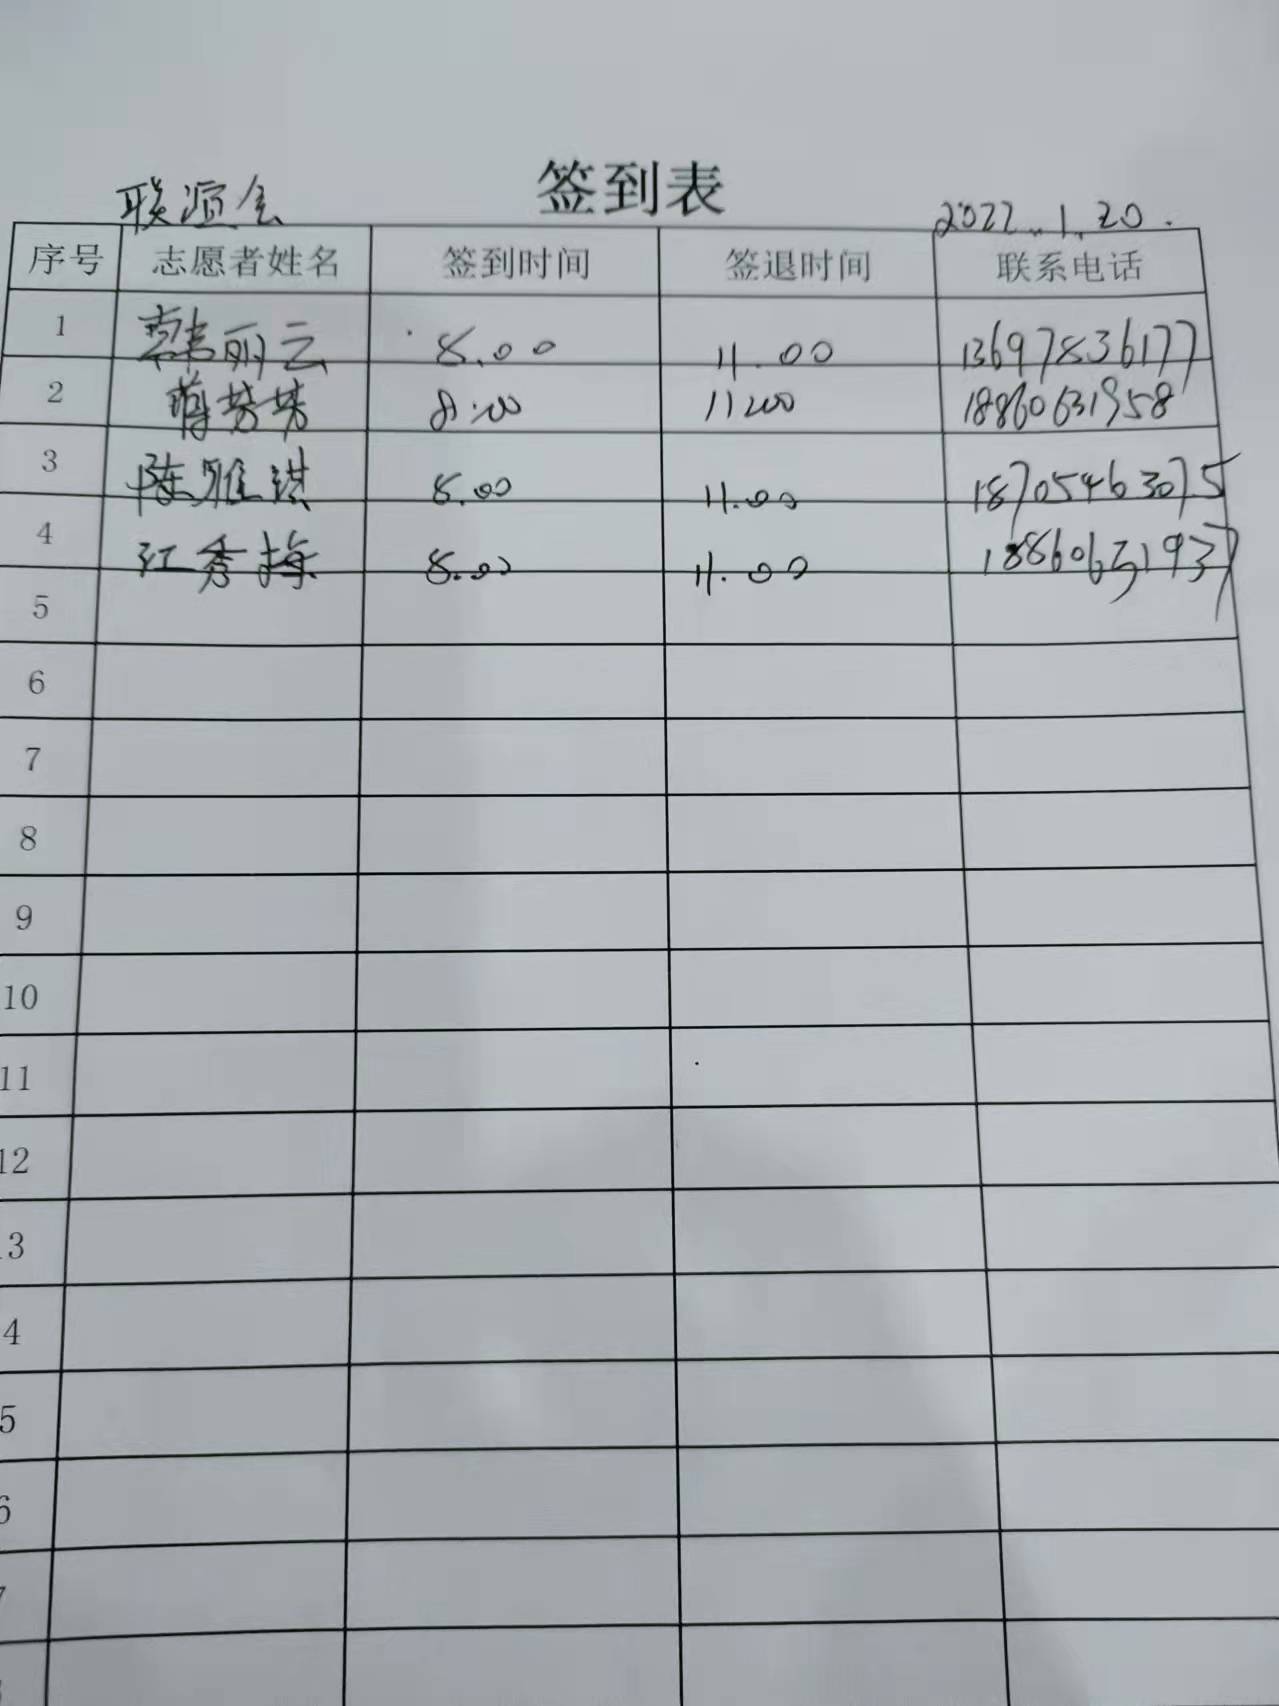 签到表
联谊会 2022.1.20.
序号 志愿者姓名 签到时间 签退时间 联系电话
1 韩丽云 8.00 11.00 13697836177
2 蒋芳芳 8:00 11:00 18860631958
3 陈雅琪 8.00 11.00 18705463075
4 江秀梅 8.00 11.00 18860631937
5
6
7
8
9
10
11
12
13
4
5
6
7